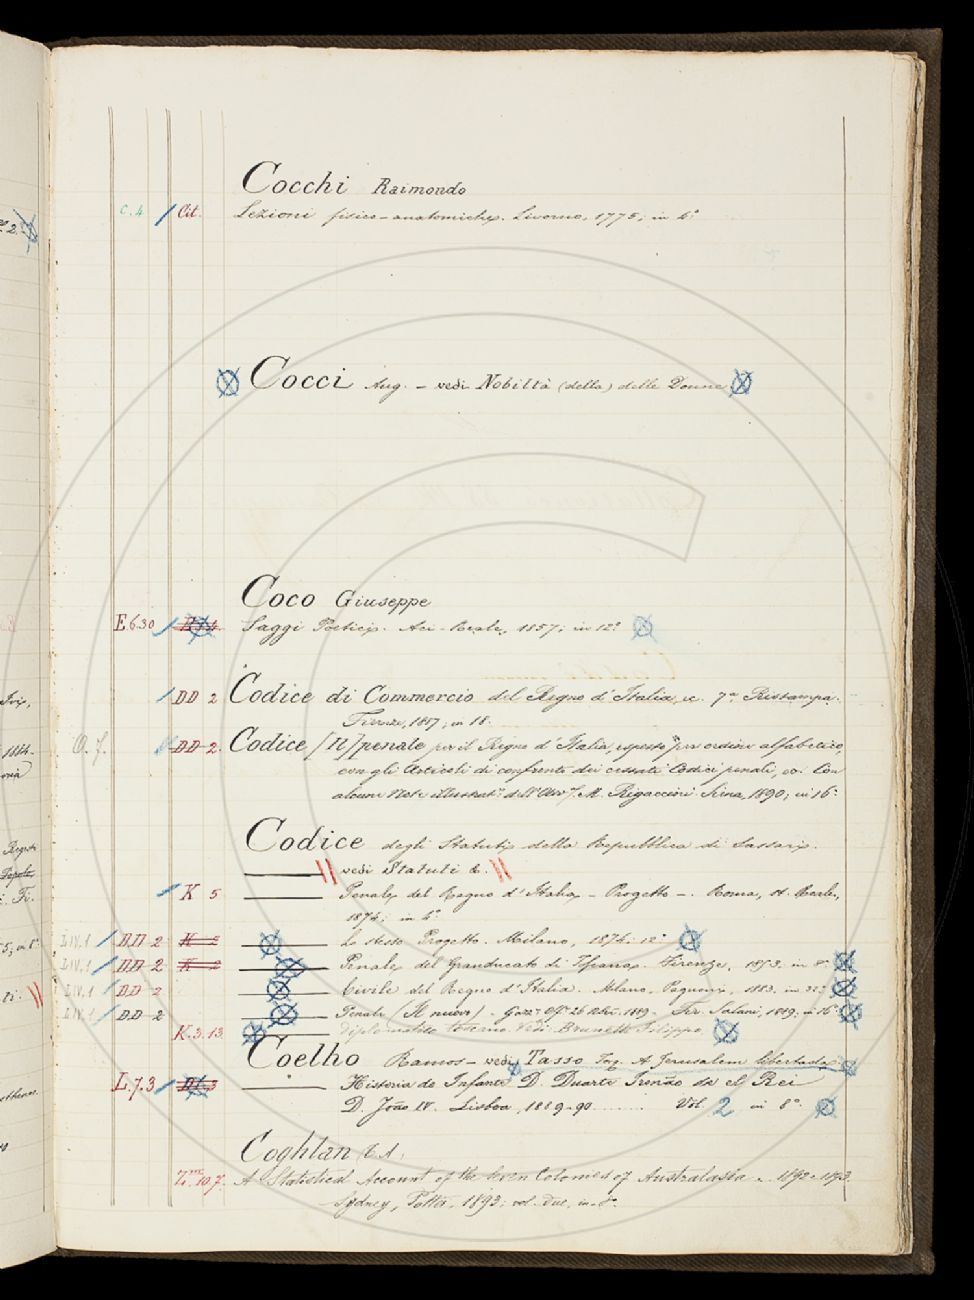 Cocchi Raimondo
C. 4 Cit. Lezioni fisico-anatomiche. Livorno, 1775; in 4.°
Cocci Aug. – vedi Nobiltà (della) delle Donne
Coco Giuseppe
E.6.30 Saggi Poetici. Aci-Reale, 1857; in 12.°
DD 2 Codice di Commercio del Regno d'Italia, ec. 7.a Ristampa.
Firenze, 18 ; in 18.
DD 2. Codice [Il] penale per il Regno d'Italia, esposto per ordine alfabetico,
con gli Articoli di confronto dei cessati Codici penali, ec. Con
alcune Note illustrat.e dell'Avv. M. Rigaccini. Siena, 1890; in 16.°
Codice degli Statuti della Repubblica di Sassari.
vedi Statuti
K 5 Penale del Regno d'Italia – Progetto –. Roma, St. Reale,
1874; in 4.°
LIV.1 DD 2 K 5 Lo stesso Progetto. Milano, 1874; 12.°
LIV.1 DD 2 K 2 Penale del Granducato di Toscana. Firenze, 1853. in 8.°
LIV.1 DD 2 Civile del Regno d'Italia. Milano, Pagnoni, 1883. in 32.°
LIV.1 DD 2 Penale (Il nuovo). Gazz. Uff. 26 1889. Fir. Salani, 1889; in 16.°
K.3.13. diplomatico toscano. Vedi Brunetti Filippo
Coelho Ramos – vedi Tasso Torq. A Jerusalem libertada
L.7.3 Historia do Infante D. Duarte Irmão de el Rei
D. João IV. Lisboa, 1889-90 ....... Vol. 2 in 8.°
Coghlan T. A.
A Statistical Account of the Seven Colonies of Australasia 1892-1893.
Sydney, Potter, 1893; vol. due, in-8.°